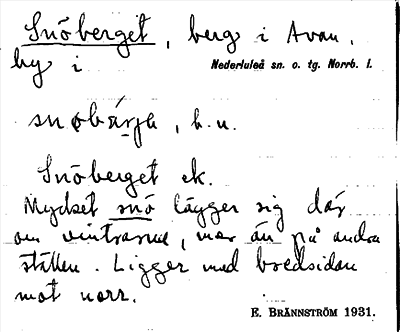 Snöberget, berg i Avan,
by i Nederluleå sn. o. tg. Norrb. l.
snøbärja, b. u.
Snöberget ek.
Mycket snö lägger sig där
om vintrarna, mer än på andra
ställen. Ligger med bredsidan
mot norr.
E. BRÄNNSTRÖM 1931.